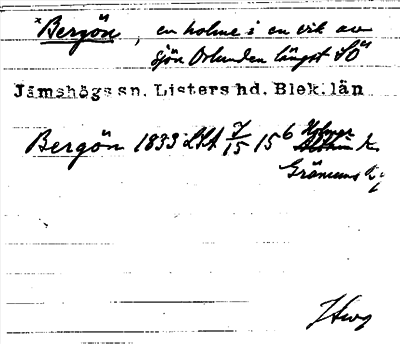 × Bergön, en holme i en vik av
sjön Orlunden längst SÖ
Jämshögs sn. Listers hd. Blek. län
Bergön 1833 LSA 7/15 15 6 Holmar
k.
Gränums